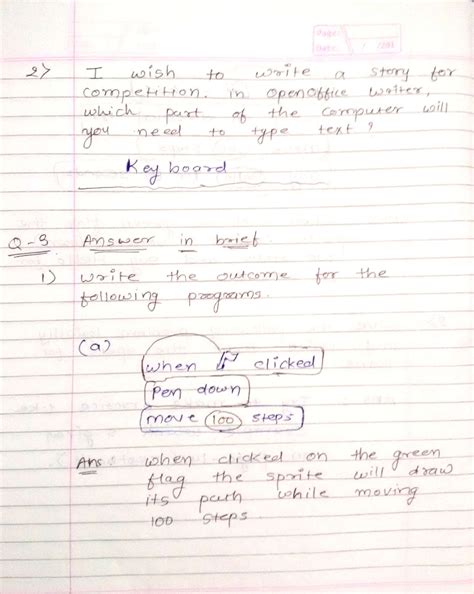 Page:
Date: / /201
2) I wish to write a story for
competition. in openoffice writer,
which part of the computer will
you need to type text?
Key board
Q-3 Answer in brief
1) Write the outcome for the
following programs.
(a)
when clicked
Pen down
move 100 steps
Ans when clicked on the green
flag the sprite will draw
its path while moving
100 steps